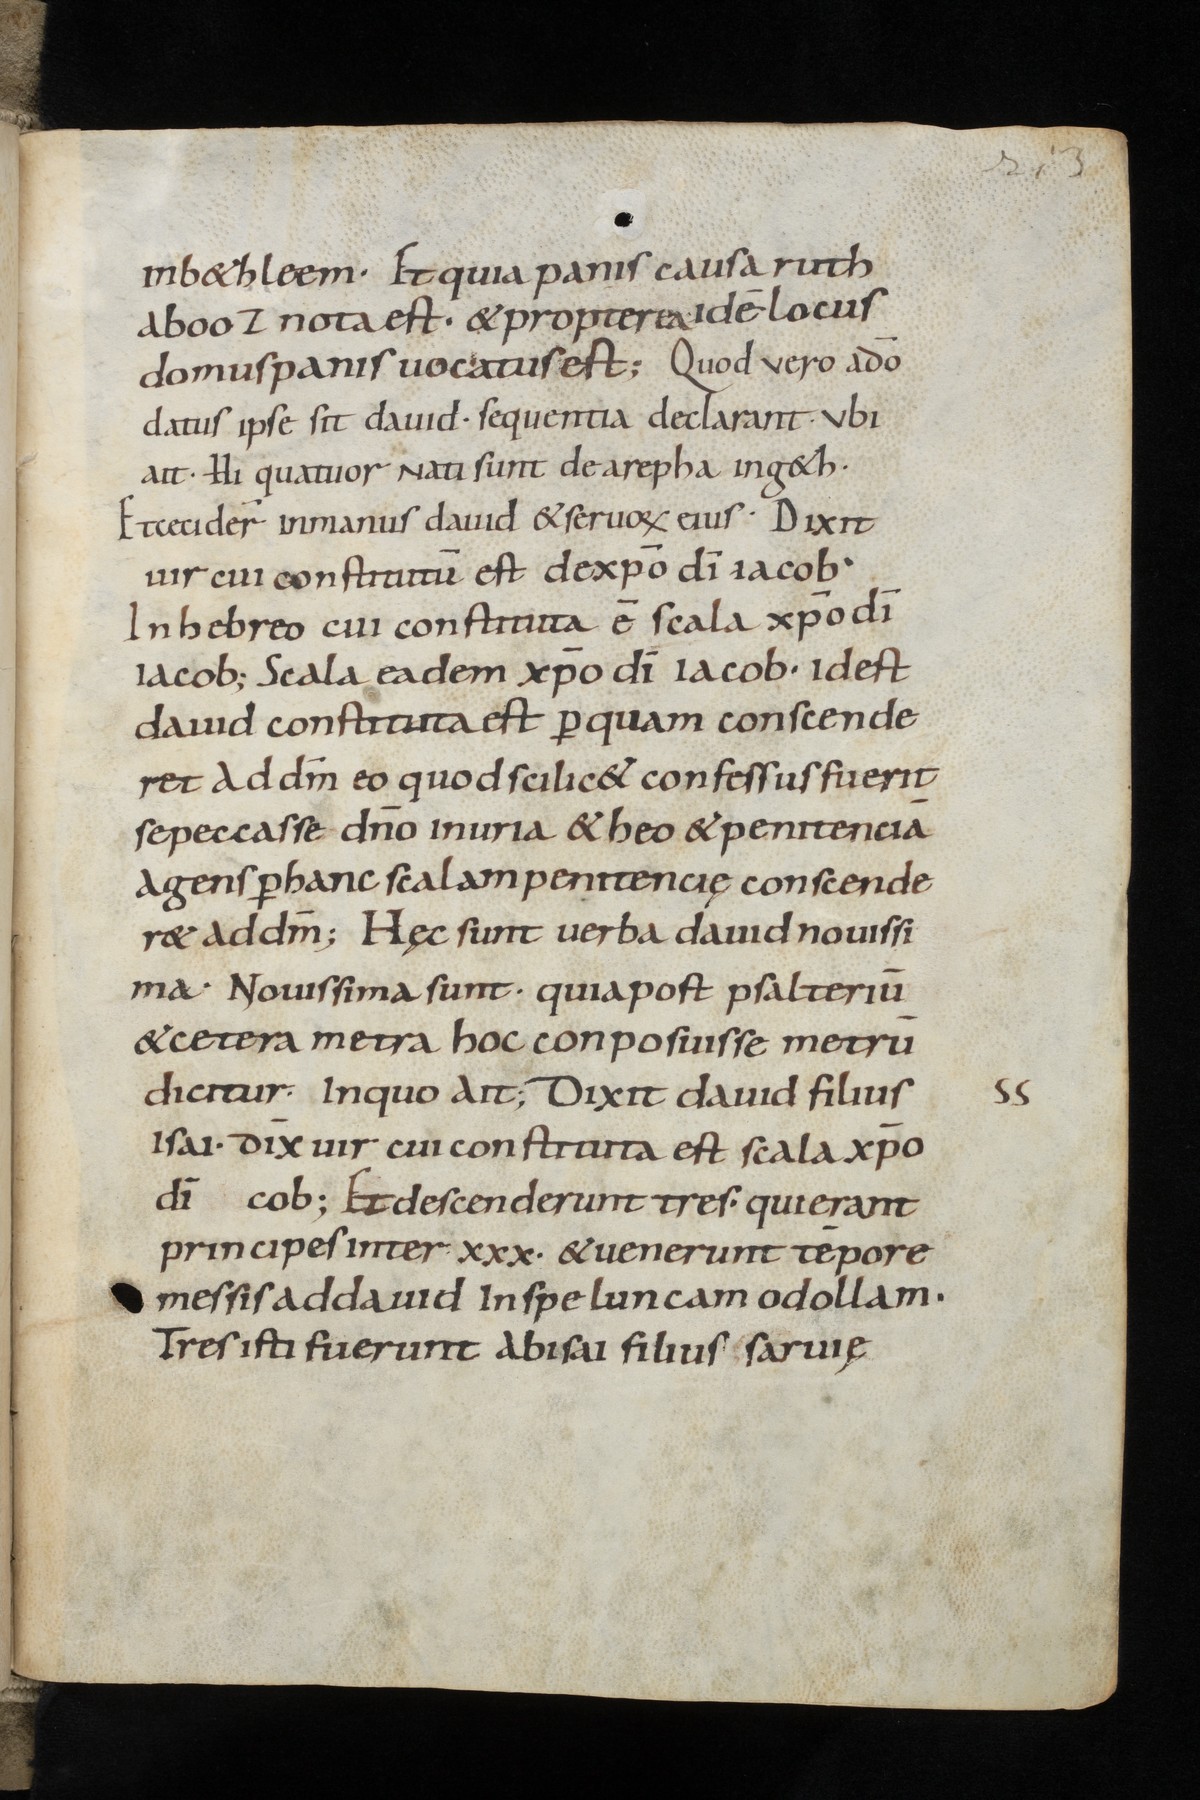 213
inb&hleem· Et quia panis causa ruth
abooz nota est· & propterea idē locus
domus panis uocatus est; Quod vero adō
datus ipse sit dauid· sequentia declarant· vbi
ait· Hi quatuor nati sunt de arepha in g&h·
Et cecider̄ in manus dauid & seruoꝝ eius· Dixit
uir cui constitutū est de xp̄o dī iacob·
In hebreo cui constituta ē scala xp̄o dī
iacob; Scala eadem xp̄o dī iacob· id est
dauid constituta est ꝑ quam conscende
ret ad dm̄ eo quod scilic& confessus fuerit
se peccasse dn̄o in uria & heo & penitenciā
agens ꝑ hanc scalam penitencię conscende
r& ad dm̄; Hęc sunt uerba dauid nouissi
ma· Nouissima sunt· quia post psalteriū
& cetera metra hoc conposuisse metrū
dicitur· In quo ait; Dixit dauid filius
ss
isai· dix̄ uir cui constituta est scala xp̄o
dī cob; Et descenderunt tres· qui erant
principes inter xxx· & uenerunt tēpore
messis ad dauid in speluncam odollam·
Tres isti fuerunt abisai filius saruię